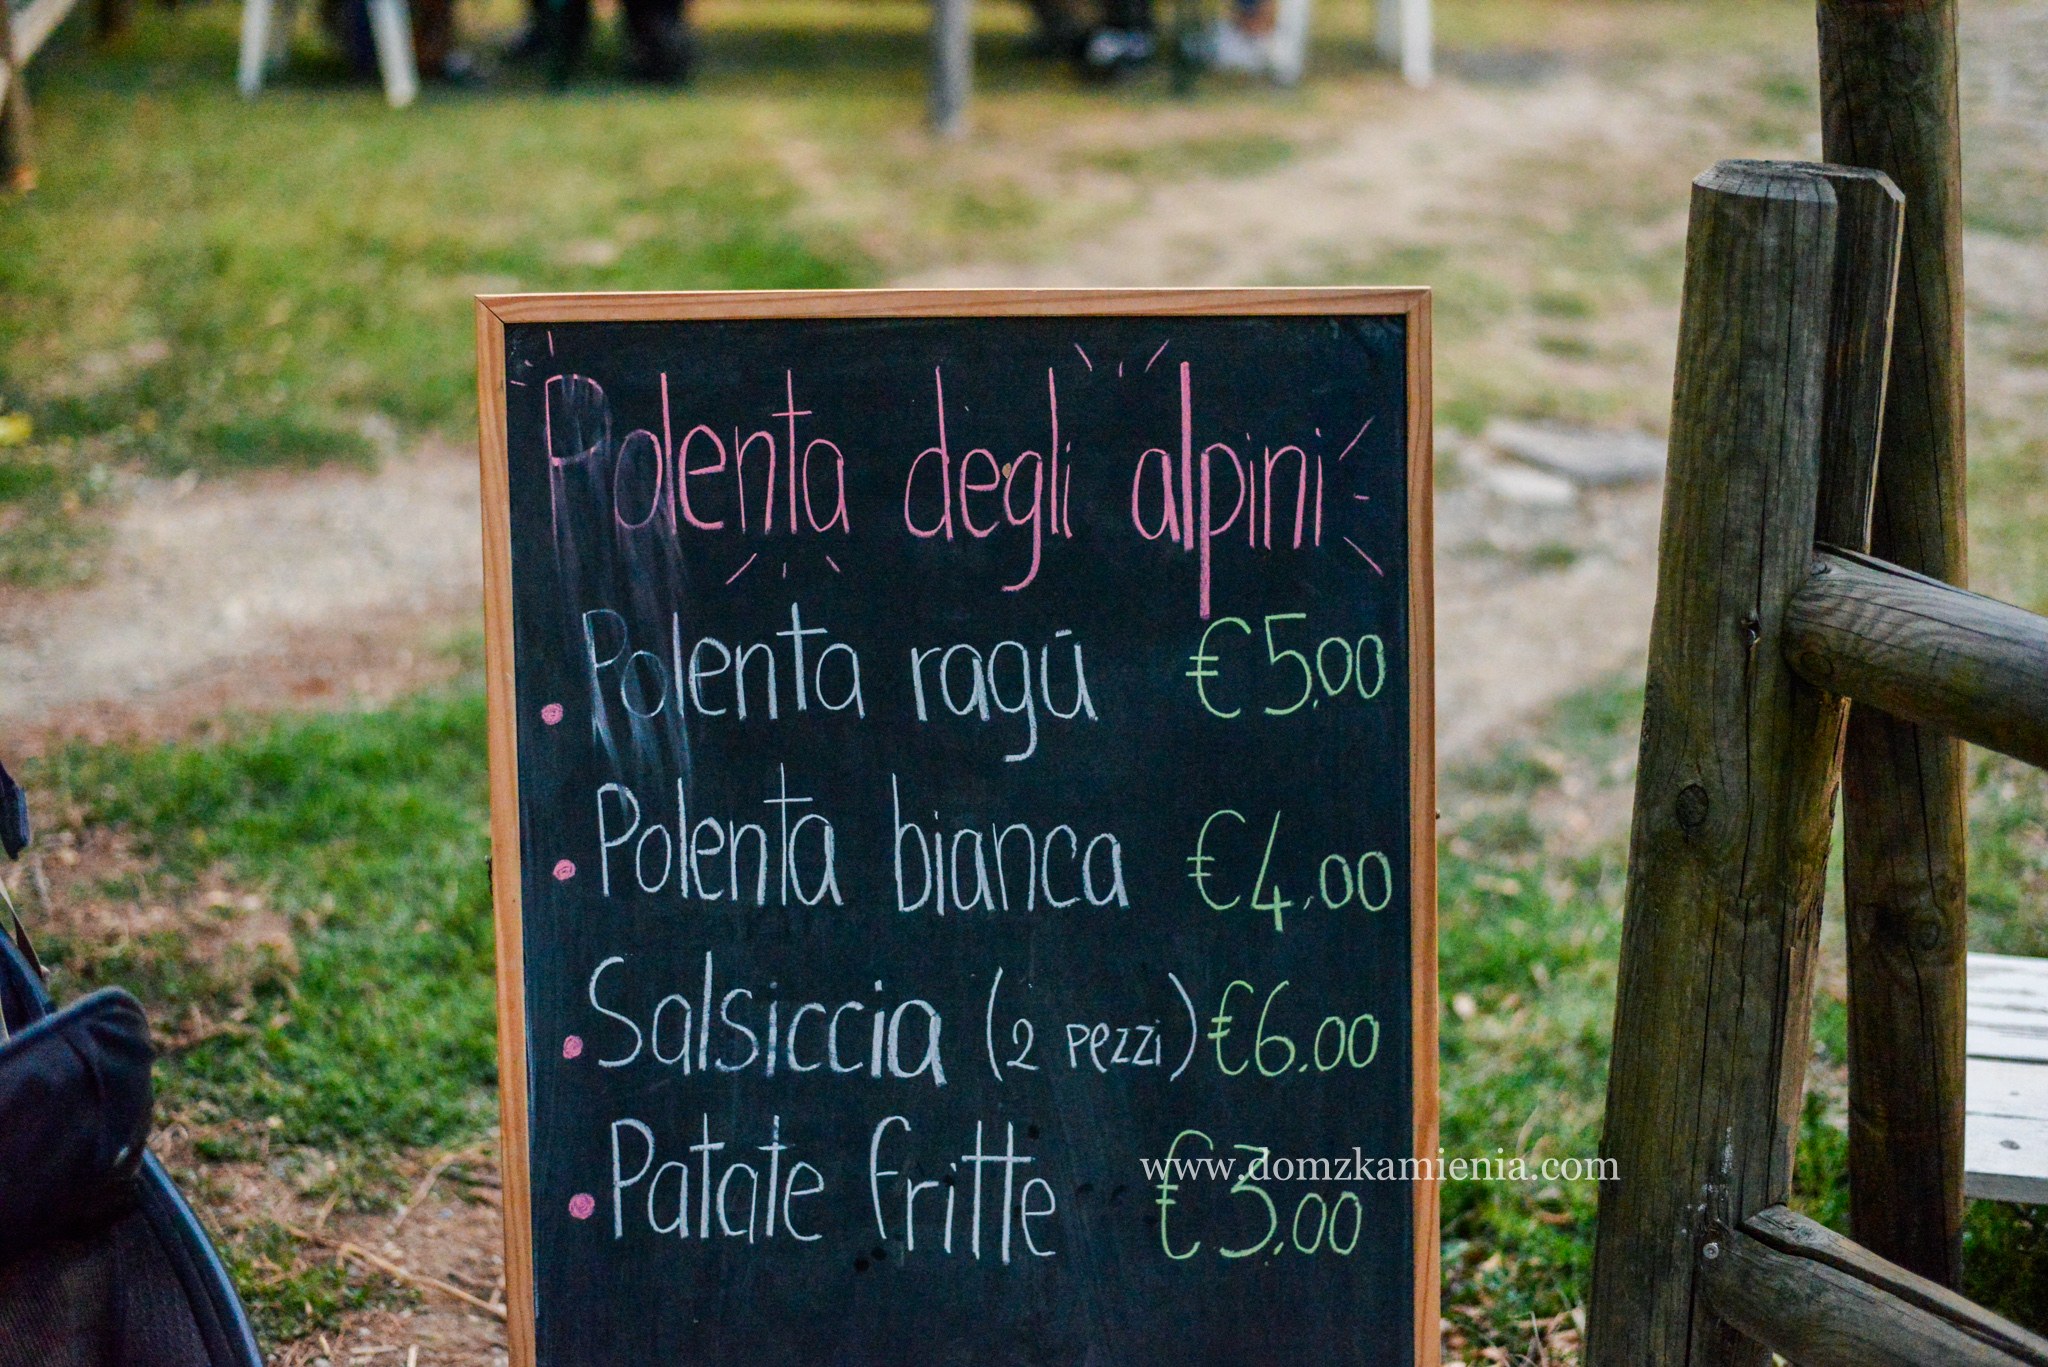 Polenta degli alpini
Polenta ragú €5.00
Polenta bianca €4.00
Salsiccia (2 pezzi) €6.00
Patate fritte €3.00
www.domzkamienia.com